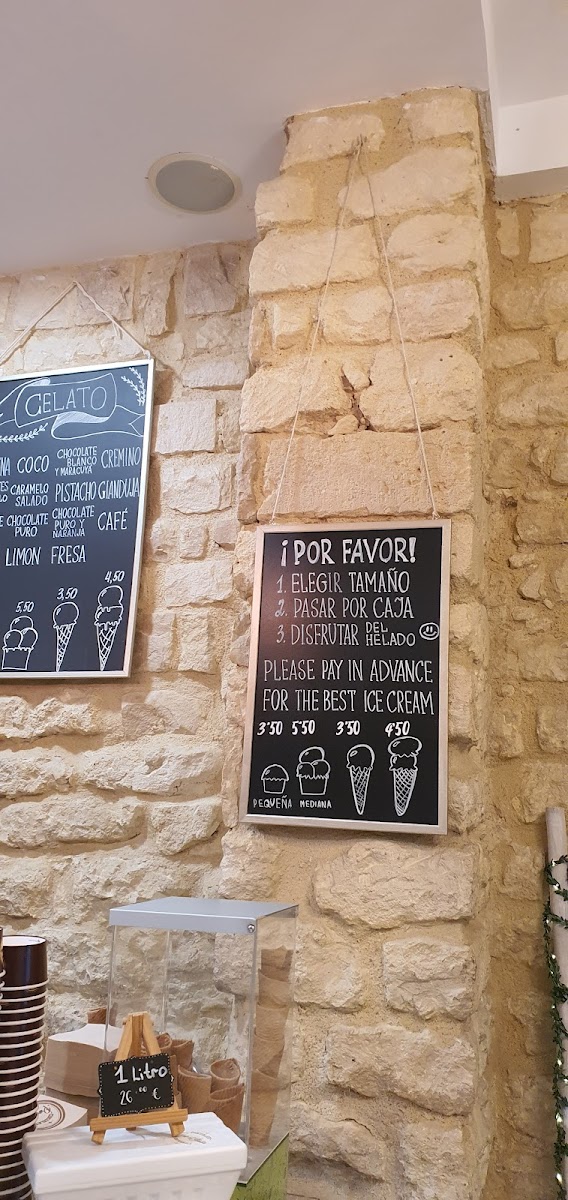 GELATO
COCO CHOCOLATE BLANCO Y MARACUYA CREMINO
CARAMELO SALADO PISTACHO GIANDUJA
CHOCOLATE PURO CHOCOLATE PURO Y NARANJA CAFÉ
LIMON FRESA
5,50 3,50 4,50
¡POR FAVOR!
1. ELEGIR TAMAÑO
2. PASAR POR CAJA
3. DISFRUTAR DEL HELADO
PLEASE PAY IN ADVANCE
FOR THE BEST ICE CREAM
3'50 5'50 3'50 4'50
PEQUEÑA MEDIANA
1 Litro
26,00 €